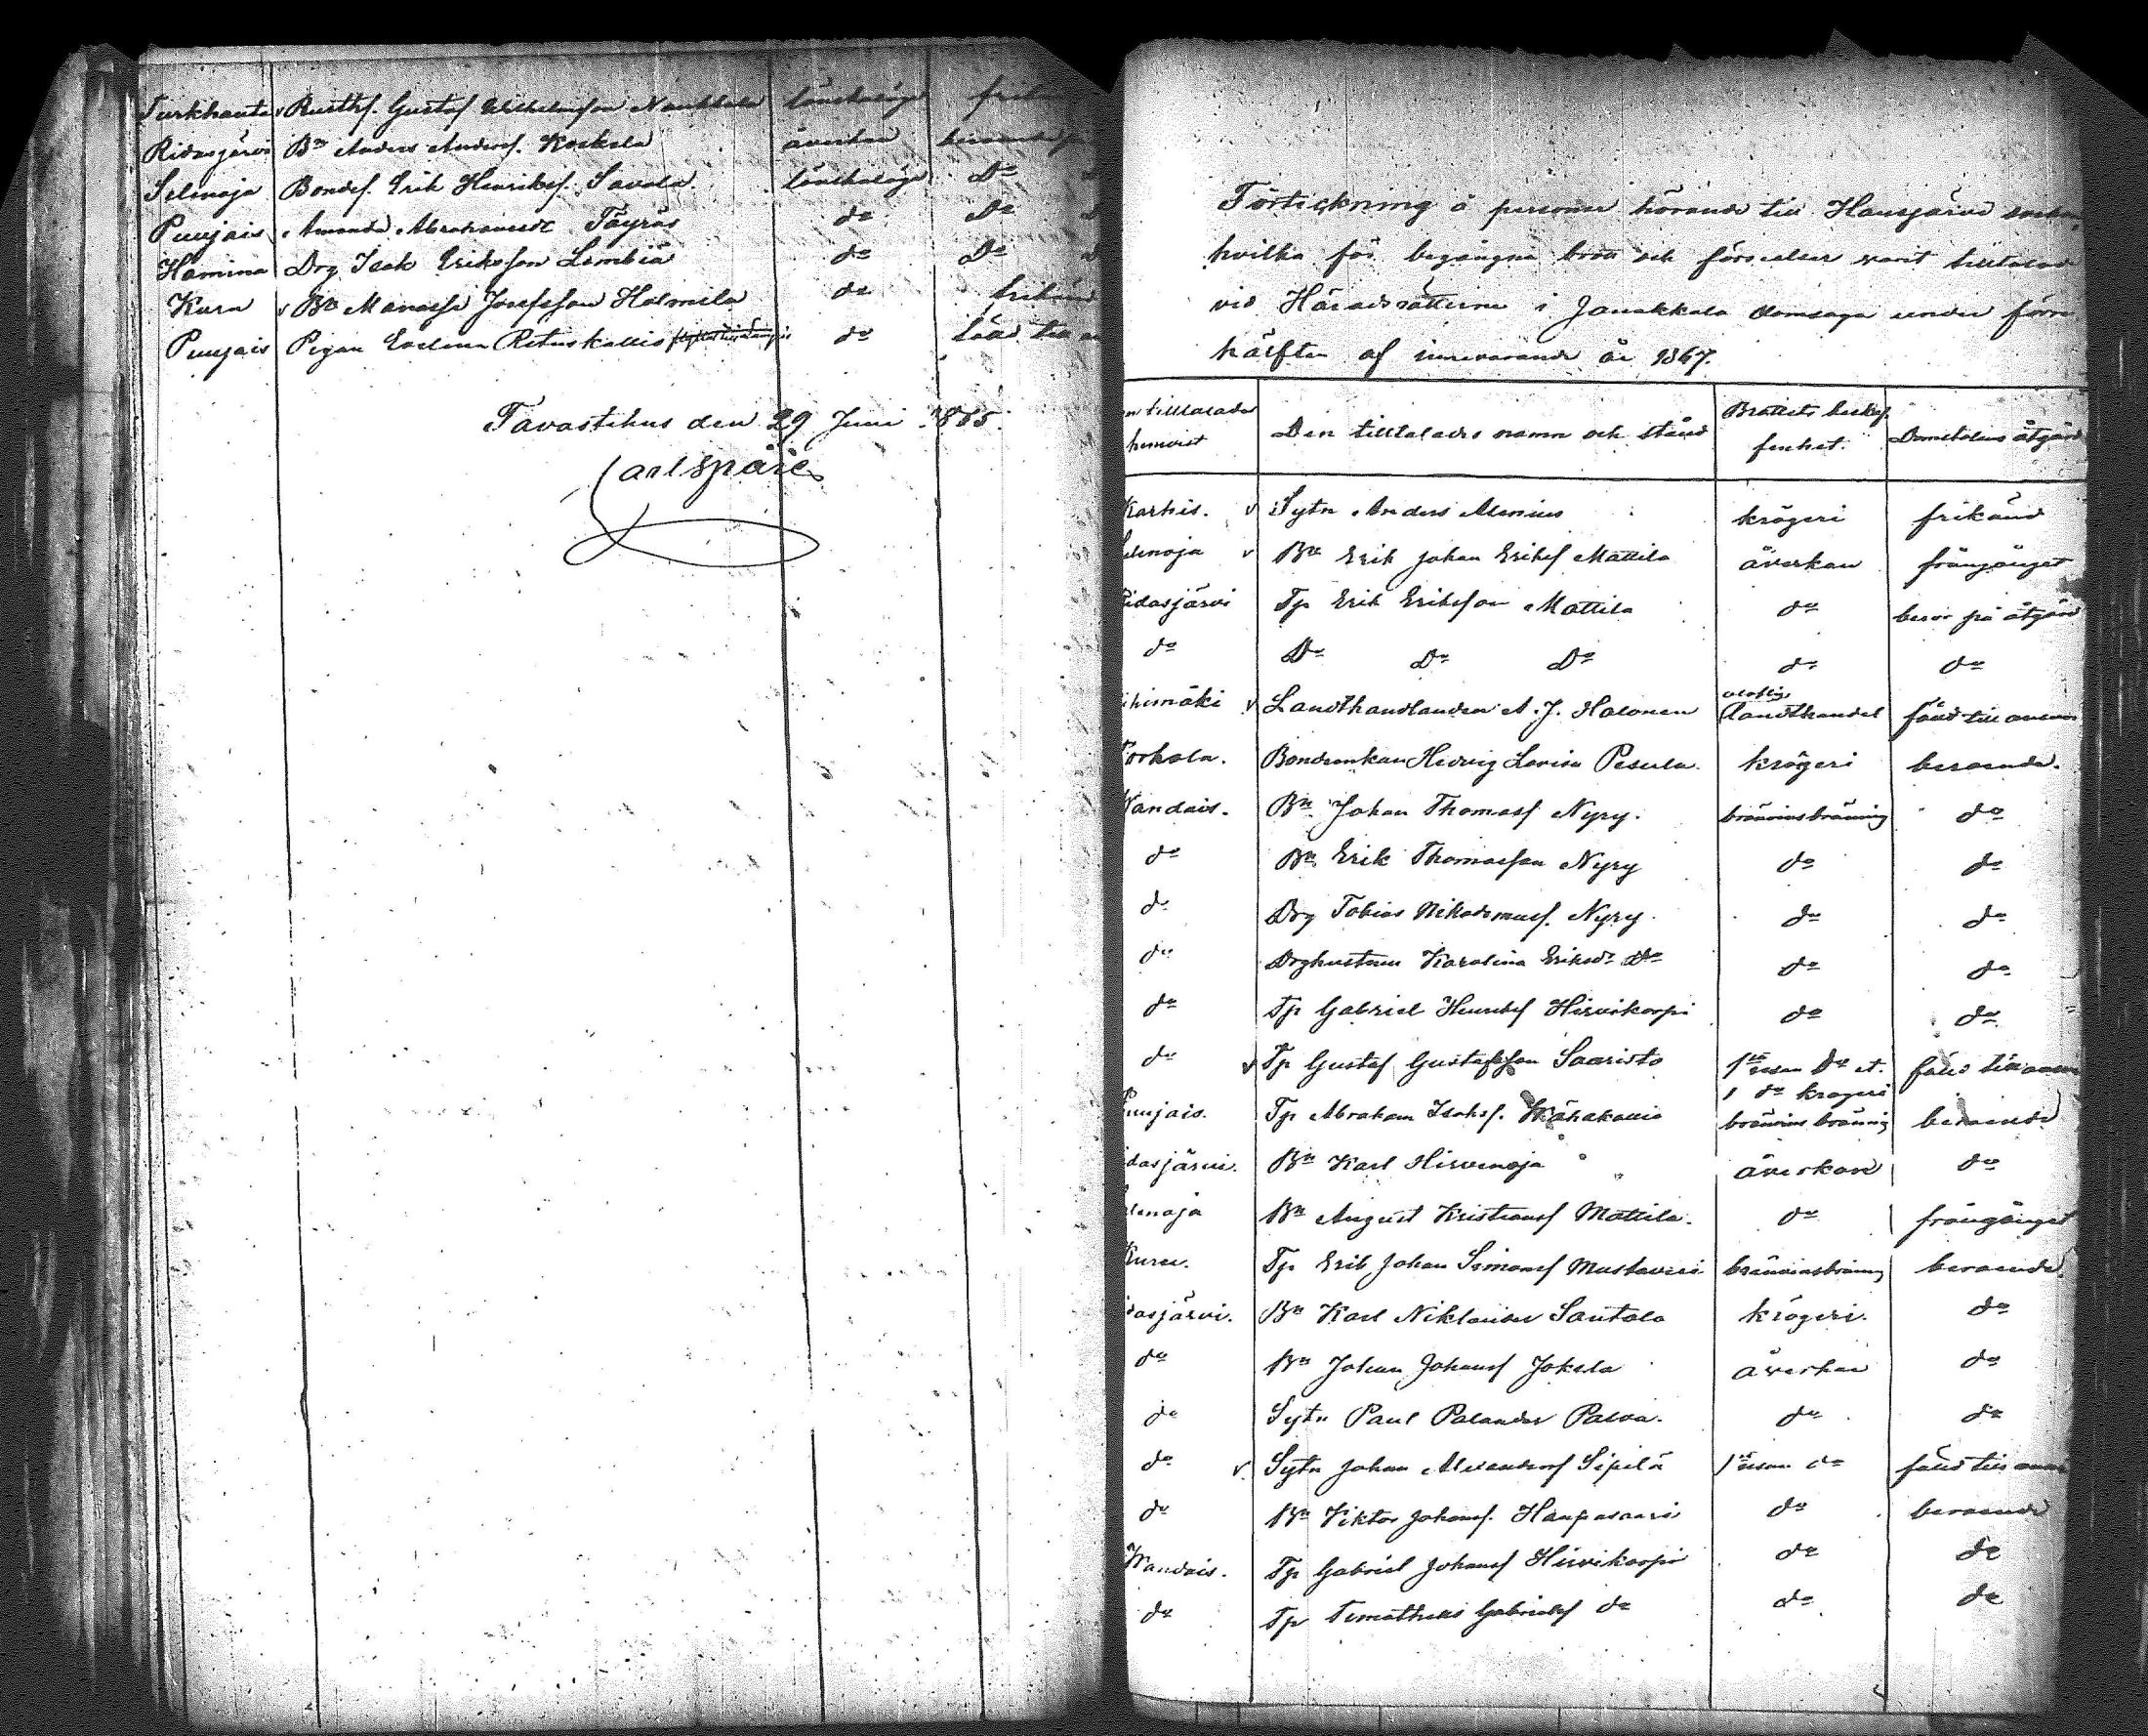 Turkhauta v Rusthf. Gustaf Wilhelmsson lönskaläge
Ridasjärvi Bn Anders Andersf. Koskela åverkan
Selenoja Bondef. Erik Henriksf. Savola. lönskaläge Do
Puujais Amanda Abrahamsdr Täyräs do Do
Hamina Drg Isak Eriksson Lembiä do Do
Kuru v Bn Manasse Josefsson Holmela do frikänd
Puujais Pigan Evelina Rituskallio do
Tavastehus den 29 Juni 1865.
Carl Spåre
Förtickning å personer hörande till Hausjärvi socken
hvilka för begångna brott och förseelser varit tilltalad
vid Häradsrätterne i Janakkala domsaga under förra
hälften af innevarande år 1867.
en tilltalades hemvist
Den tilltalades namn och stånd
Brottets beskaffenhet.
Domstolens åtgärd
Karhis. v Sytn Anders Alenius krögeri frikänd
elenoja v Bn Erik Johan Eriksf Mattila åverkan frångånget
Ridasjärvi Tp Erik Eriksson Mattila do beror på åtgärd
do Do Do Do do do
ihimäki v Landthandlanden A. J. Halonen olaflig landthandel
Torhola. Bondeenkan Hedvig Lovisa Pesula. krögeri beroende.
Wandais. Bn Johan Thomasf Nyry. bränvinsbräning do
do Bn Erik Thomasson Nyry do do
do Drg Tobias Nikodemusf. Nyry. do do
do Drghustrun Karolina Eriksdr Do do do
do Tp Gabriel Henriksf Hirvikorpi do do
do v Tp Gustaf Gustafsson Saaristo 1sta resan do et. 1 do krögeri
Puujais. Tp Abraham Isaksf. Kähäkallio bränvinsbräning beroende
idasjärvi. Bn Karl Hirvenoja åverkan do
elenoja Bn August Kristiansf Mattila. do frångånget
Kuru. Tp Erik Johan Simonsf bränvinsbräning beroende.
idasjärvi. Bn Karl Niklander Santala krögeri. do
do Bn Johan Johansf Jokela åverkan do
do Sytn Paul Palander Palva. do do
do v. Sytn Johan Alexandersf Sipilä 1sta resan do
do Bn Viktor Johansf. Haapasaari do beroende
Wandais. Tp Gabriel Johansf Hirvikorpi do do
do Tp Timotheus Gabrielsf do do do